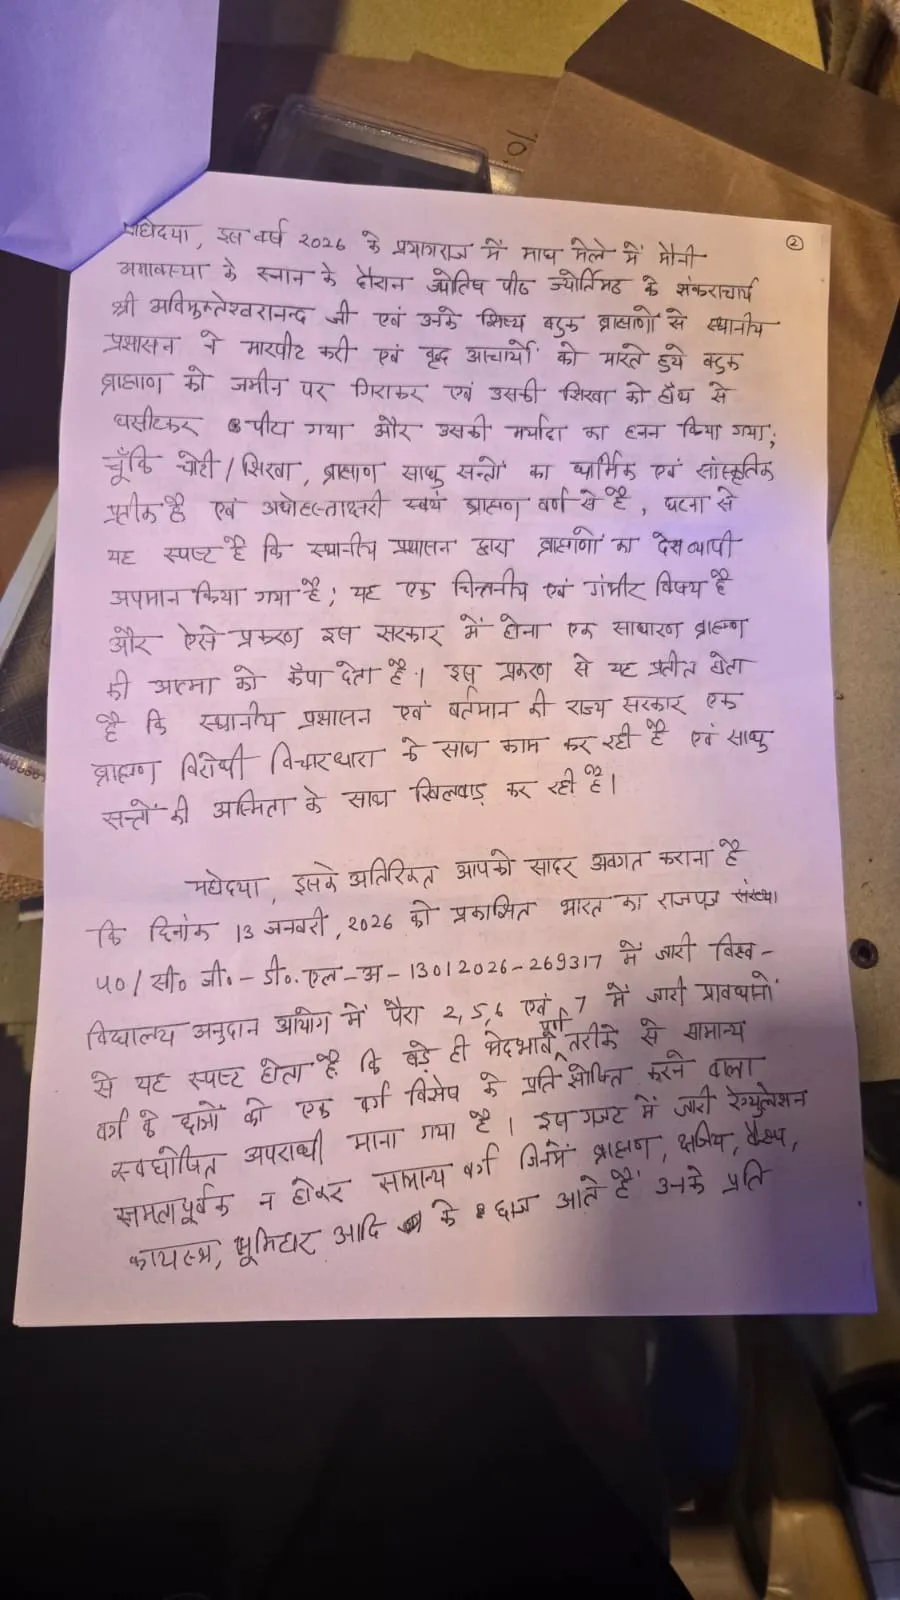 ②
महोदया, इस वर्ष 2026 के प्रयागराज में माघ मेले में मौनी
अमावस्या के स्नान के दौरान ज्योतिष पीठ ज्योर्तिमठ के शंकराचार्य
श्री अविमुक्तेश्वरानन्द जी एवं उनके शिष्य बटुक ब्राह्मणों से स्थानीय
प्रशासन ने मारपीट करी एवं वृद्ध आचार्यो को मारते हुये बटुक
ब्राह्मण को जमीन पर गिराकर एवं उसकी शिखा को हाँथ से
घसीटकर पीटा गया और उसकी मर्यादा का हनन किया गया;
चूँकि चोटी/शिखा, ब्राह्मण साधु सन्तों का धार्मिक एवं सांस्कृतिक
प्रतीक है एवं अधोहस्ताक्षरी स्वयं ब्राह्मण वर्ण से है, घटना से
यह स्पष्ट है कि स्थानीय प्रशासन द्वारा ब्राह्मणों का देशव्यापी
अपमान किया गया है; यह एक चिन्तनीय एवं गंभीर विषय है
और ऐसे प्रकरण इस सरकार में होना एक साधारण ब्राह्मण
की आत्मा को कँपा देता है। इस प्रकरण से यह प्रतीत होता
है कि स्थानीय प्रशासन एवं वर्तमान की राज्य सरकार एक
ब्राह्मण विरोधी विचारधारा के साथ काम कर रही है एवं साधु
सन्तों की अस्मिता के साथ खिलवाड़ कर रही है।
महोदया, इसके अतिरिक्त आपको सादर अवगत कराना है
कि दिनांक 13 जनवरी, 2026 को प्रकाशित भारत का राजपत्र संख्या
40/सी० जी०-डी०.एल-अ-13012026-269317 में जारी विश्व-
विद्यालय अनुदान आयोग में पैरा 2, 5, 6 एवं 7 में जारी प्रावधानों
से यह स्पष्ट होता है कि बड़े ही भेदभाव पूर्ण तरीके से सामान्य
वर्ग के छात्रों को एक वर्ग विशेष के प्रति शोषित करने वाला
स्वघोषित अपराधी माना गया है। इस गजट में जारी रेग्युलेशन
समतापूर्वक न होकर सामान्य वर्ग जिनमें ब्राह्मण, क्षत्रिय, वैश्य,
कायस्थ, भूमिहार आदि के छात्र आते हैं उनके प्रति